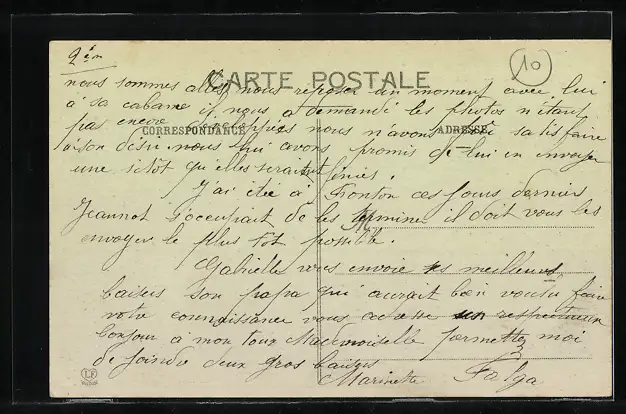 2èm
10
CARTE POSTALE
nous sommes allés nous reposer un moment avec lui
à sa cabane il nous a demandé les photos n'étant
CORRESPONDANCE
ADRESSE
pas encore nous n'avons satisfaire
son désir nous lui avons promis de lui en envoyer
une sitôt qu'elles seraient finies.
J'ai été à Fronton ces jours derniers
Jeannot s'occupait de les terminer il doit vous les
envoyer le plus tôt possible.
Gabrielle vous envoie ses meilleurs
baisers son papa qui aurait bien voulu faire
votre connaissance vous adresse son respectueux
bonjour à mon tour Mademoiselle permettez moi
de joindre deux gros baisers
Marinette Falga